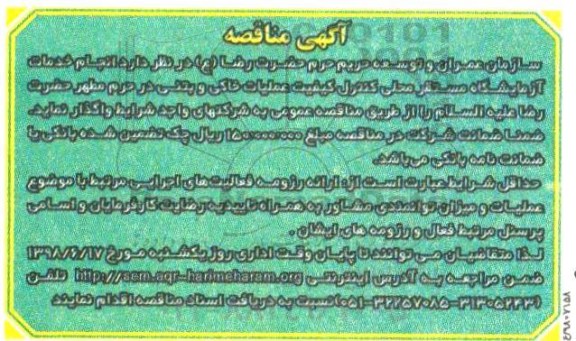 آگهی مناقصه
سازمان عمران و توسعه حریم حرم حضرت رضا (ع) در نظر دارد انجام خدمات
آزمایشگاه مستقر محلی کنترل کیفیت عملیات خاکی و بتنی در حرم مطهر حضرت
رضا علیه السلام را از طریق مناقصه عمومی به شرکتهای واجد شرایط واگذار نماید.
ضمنا ضمانت شرکت در مناقصه مبلغ ریال چک تضمین شده بانکی یا
ضمانت نامه بانکی می‌باشد.
حداقل شرایط عبارت است از: ارائه رزومه فعالیت‌های اجرایی مرتبط با موضوع
عملیات و میزان توانمندی مشاور به همراه تاییدیه رضایت کارفرمایان و اسامی
پرسنل مرتبط فعال و رزومه های ایشان.
لذا متقاضیان می توانند تا پایان وقت اداری روز یکشنبه مورخ ۱۳۹۸/۶/۱۷
ضمن مراجعه به آدرس اینترنتی http://scm.aqr-harimeharam.org تلفن
(۳۱۳۰۵۲۴۳-۳۲۲۵۷۰۸۵-۰۵۱) نسبت به دریافت اسناد مناقصه اقدام نمایند
۹۸۰۷۱۵۸